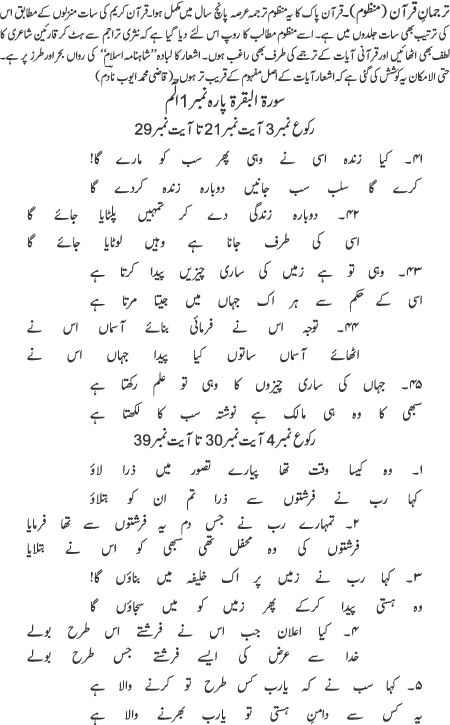 ترجمانِ قرآن (منظوم)۔ قرآن پاک کا یہ منظوم ترجمہ عرصہ پانچ سال میں مکمل ہوا۔ قرآن کریم کی سات منزلوں کے مطابق اس
کی ترتیب بھی سات جلدوں میں ہے۔ اسے منظوم مطالب کا روپ اس لئے دیا گیا ہے کہ نثری تراجم سے ہٹ کر قارئین شاعری کا
لطف بھی اٹھائیں اور قرآنی آیات کے ترجمے کی طرف بھی راغب ہوں۔ اشعار کا لبادہ ’’شاہنامہ اسلام‘‘ کی رواں بحر اور طرز پر ہے۔
حتی الامکان یہ کوشش کی گئی ہے کہ اشعار آیات کے اصل مفہوم کے قریب تر ہوں۔ (قاضی محمد ایوب نادم)
سورۃ البقرۃ پارہ نمبر1 الٓمٓ
رکوع نمبر3 آیت نمبر21 تا آیت نمبر29
۴۱۔ کیا زندہ اسی نے وہی پھر سب کو مارے گا!
کرے گا سلب سب جانیں دوبارہ زندہ کردے گا
۴۲۔ دوبارہ زندگی دے کر تمہیں پلٹایا جائے گا
اسی کی طرف جانا ہے وہیں لوٹایا جائے گا
۴۳۔ وہی تو ہے زمیں کی ساری چیزیں پیدا کرتا ہے
اسی کے حکم سے ہر اک جہاں میں جیتا مرتا ہے
۴۴۔ توجہ اس نے فرمائی بنائے آسماں اس نے
اٹھائے آسماں ساتوں کیا پیدا جہاں اس نے
۴۵۔ جہاں کی ساری چیزوں کا وہی تو علم رکھتا ہے
سبھی کا وہ ہی مالک ہے نوشتہ سب کا لکھتا ہے
رکوع نمبر4 آیت نمبر30 تا آیت نمبر39
۱۔ وہ کیسا وقت تھا پیارے تصور میں ذرا لاؤ
کہا رب نے فرشتوں سے ذرا تم ان کو بتلاؤ
۲۔ تمہارے رب نے جس دم یہ فرشتوں سے تھا فرمایا
فرشتوں کی وہ محفل تھی سبھی کو اس نے بتلایا
۳۔ کہا رب نے زمیں پر اک خلیفہ میں بناؤں گا!
وہ ہستی پیدا کرکے پھر زمیں کو میں سجاؤں گا
۴۔ کیا اعلان جب اس نے فرشتے اس طرح بولے
خدا سے عرض کی ایسے فرشتے جس طرح بولے
۵۔ کہا سب نے کہ یارب کس طرح تو کرنے والا ہے
یہ کس سے دامنِ ہستی تو یارب بھرنے والا ہے